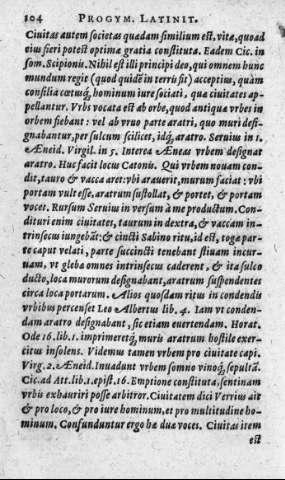 104 PROGYM. LATINIT.
Ciuitas autem societas quædam similium est, vitæ, quoad
eius fieri potest optimæ gratia constituta. Eadem Cic. in
som. Scipionis. Nihil est illi principi deo, qui omnem hunc
mundum regit (quod quidē in terris sit) acceptius, quàm
consilia cœtusq́, hominum iure sociati, quæ ciuitates ap-
pellantur. Vrbs vocata est ab orbe, quod antiquæ vrbes in
orbem fiebant: vel ab vruo parte aratri, quo muri desi-
gnabantur, per sulcum scilicet, idq́, aratro. Seruius in 1.
Æneid. Virgil. in 5. Interea Æneas vrbem designat
aratro. Huc facit locus Catonis. Qui vrbem nouam con-
dit, tauro & vacca aret: vbi arauerit, murum faciat: vbi
portam vult esse, aratrum sustollat, & portet, & portam
vocet. Rursum Seruius in versum à me productum. Con-
dituri enim ciuitates, taurum in dextra, & vaccam in-
trinsecus iungebāt: & cincti Sabino ritu, id est, togæ par-
te caput velati, parte succincti tenebant stiuam incur-
uam, vt glebæ omnes intrinsecus caderent, & ita sulco
ducto, loca murorum designabant, aratrum suspendentes
circa loca portarum. Alios quosdam ritus in condendis
vrbibus percenset Leo Albertus lib. 4. Iam vt conden-
dam aratro designabant, sic etiam euertendam. Horat.
Ode 16. lib. 1. imprimeretq́, muris aratrum hostile exer-
citus insolens. Videmus tamen vrbem pro ciuitate capi.
Virg. 2. Æneid. Inuadunt vrbem somno vinoq́, sepultā.
Cic. ad Att. lib. 1. epist. 16. Emptione constituta, sentinam
vrbis exhauriri posse arbitror. Ciuitatem dici Verrius ait
& pro loco, & pro iure hominum, et pro multitudine ho-
minum. Confunduntur ergo hæ duæ voces. Ciuitas item
est